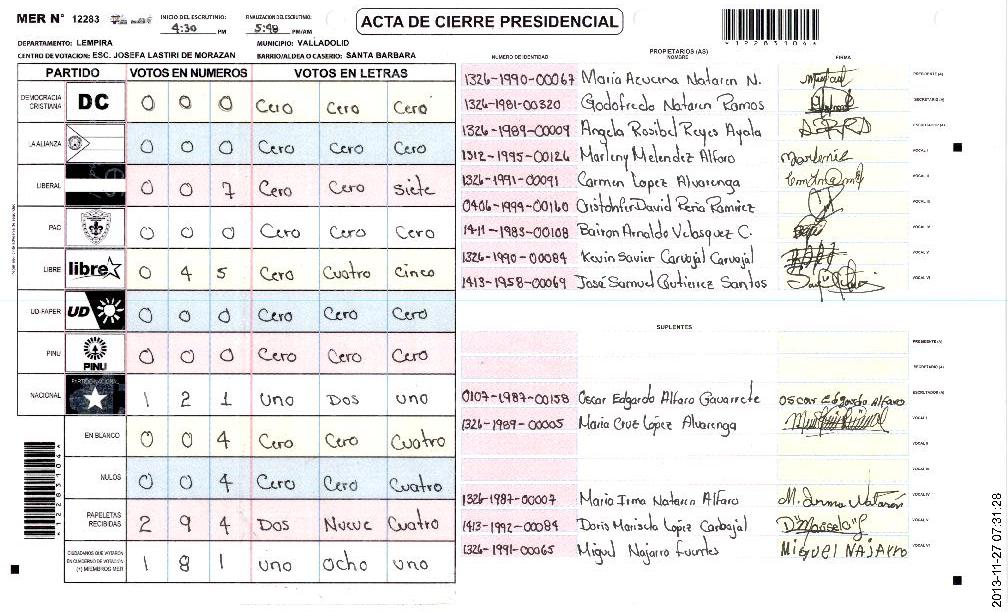 MER N° 12283
INICIO DEL ESCRUTINIO: 4:30 PM
FINALIZACION DEL ESCRUTINIO: 5:48 PM/AM
ACTA DE CIERRE PRESIDENCIAL
*12283104*
DEPARTAMENTO: LEMPIRA
MUNICIPIO: VALLADOLID
CENTRO DE VOTACION: ESC. JOSEFA LASTIRI DE MORAZAN
BARRIO/ALDEA O CASERIO: SANTA BARBARA
PARTIDO VOTOS EN NUMEROS VOTOS EN LETRAS
DEMOCRACIA CRISTIANA DC 0 0 0 Cero Cero Cero
LA ALIANZA 0 0 0 Cero Cero Cero
LIBERAL 0 0 7 Cero Cero siete
PAC 0 0 0 Cero Cero Cero
LIBRE libre 0 4 5 Cero Cuatro cinco
UD-FAPER UD 0 0 0 Cero Cero Cero
PINU PINU 0 0 0 Cero Cero Cero
NACIONAL PARTIDO NACIONAL 1 2 1 uno Dos uno
EN BLANCO 0 0 4 Cero Cero Cuatro
NULOS 0 0 4 Cero Cero Cuatro
PAPELETAS RECIBIDAS 2 9 4 Dos Nueve Cuatro
CIUDADANOS QUE VOTARON EN CUADERNO DE VOTACION (+) MIEMBROS MER 1 8 1 uno ocho uno
*12283104*
PROPIETARIOS (AS)
NUMERO DE IDENTIDAD NOMBRE FIRMA
1326-1990-00067 Maria Azucena Nataren N. PRESIDENTE (A)
1326-1981-00320 Godofredo Nataren Ramos SECRETARIO (A)
1326-1989-00009 Angela Rosibel Reyes Ayala ESCRUTADOR (A)
1312-1995-00126 Marleny Melendez Alfaro VOCAL I
1326-1991-00091 Carmen Lopez Alvarenga VOCAL II
0406-1994-00160 Cristohfer David Peña Ramirez VOCAL III
1411-1983-00108 Bairon Arnaldo Velasquez C. VOCAL IV
1326-1990-00084 Kevin Xavier Carvajal Carvajal VOCAL V
1413-1958-00069 José Samuel Gutierrez Santos VOCAL VI
SUPLENTES
PRESIDENTE (A)
SECRETARIO (A)
0107-1987-00158 Oscar Edgardo Alfaro Gavarrete oscar Edgardo Alfaro ESCRUTADOR (A)
1326-1989-00005 Maria Cruz López Alvarenga VOCAL I
VOCAL II
VOCAL III
1326-1987-00007 Maria Irma Nataren Alfaro M. Irma Natarén VOCAL IV
1413-1992-00084 Doris Marisela López Carbajal VOCAL V
1326-1991-00065 Miguel Najarro Fuentes MiguEL NAJARRO VOCAL VI
2013-11-27 07:31:28